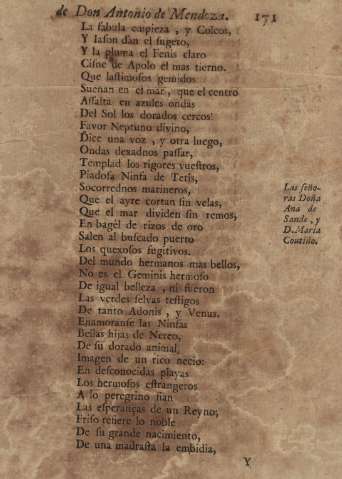 de Don Antonio de Mendoza. 171
La fabula empieza, y Colcos,
Y Iason dan el sugeto,
Y la pluma el Fenis claro
Cisne de Apolo el mas tierno.
Que lastimosos gemidos
Suenan en el mar, que el centro
Assalta en azules ondas
Del Sol los dorados cercos!
Favor Neptuno divino,
Dice una voz, y otra luego,
Ondas dexadnos passar,
Templad los rigores vuestros,
Piadosa Ninfa de Tetis,
Socorrednos marineros,
Que el ayre cortan sin velas,
Que el mar dividen sin remos,
En bagél de rizos de oro
Salen al buscado puerto
Los quexosos fugitivos.
Del mundo hermanos mas bellos,
No es el Geminis hermoso
De igual belleza, ni fueron
Las verdes selvas testigos
De tanto Adonis, y Venus.
Enamoranse las Ninfas
Bellas hijas de Nereo,
De su dorado animal,
Imagen de un rico necio:
En desconocidas playas
Los hermosos estrangeros
A lo peregrino fian
Las esperanças de un Reyno;
Friso refiere lo noble
De su grande nacimiento,
De una madrasta la embidia,
Y
Las seño-
ras Doña
Ana de
Sande, y
D. Maria
Coutiño.